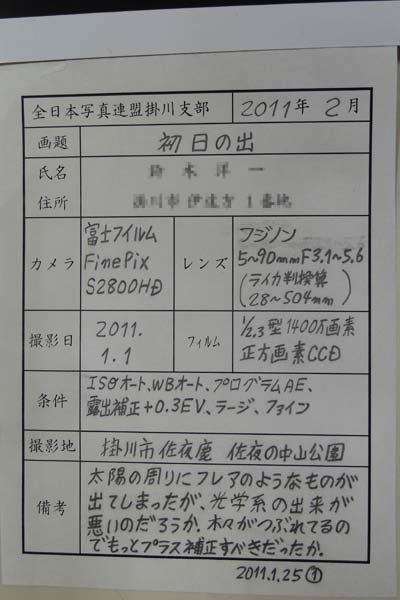 全日本写真連盟掛川支部 2011年 2月
画題 初日の出
氏名
住所
カメラ 富士フイルム FinePix S2800HD
レンズ フジノン 5~90mmF3.1~5.6 (ライカ判換算 28~504mm)
撮影日 2011. 1.1
フィルム 1/2.3型1400万画素 正方画素CCD
条件 ISOオート、WBオート、プログラムAE、
露出補正+0.3EV、ラージ、ファイン
撮影地 掛川市佐夜鹿 佐夜の中山公園
備考 太陽の周りにフレアのようなものが
出てしまったが、光学系の出来が
悪いのだろうか。木々がつぶれてるの
でもっとプラス補正すべきだったか。
2011.1.25①